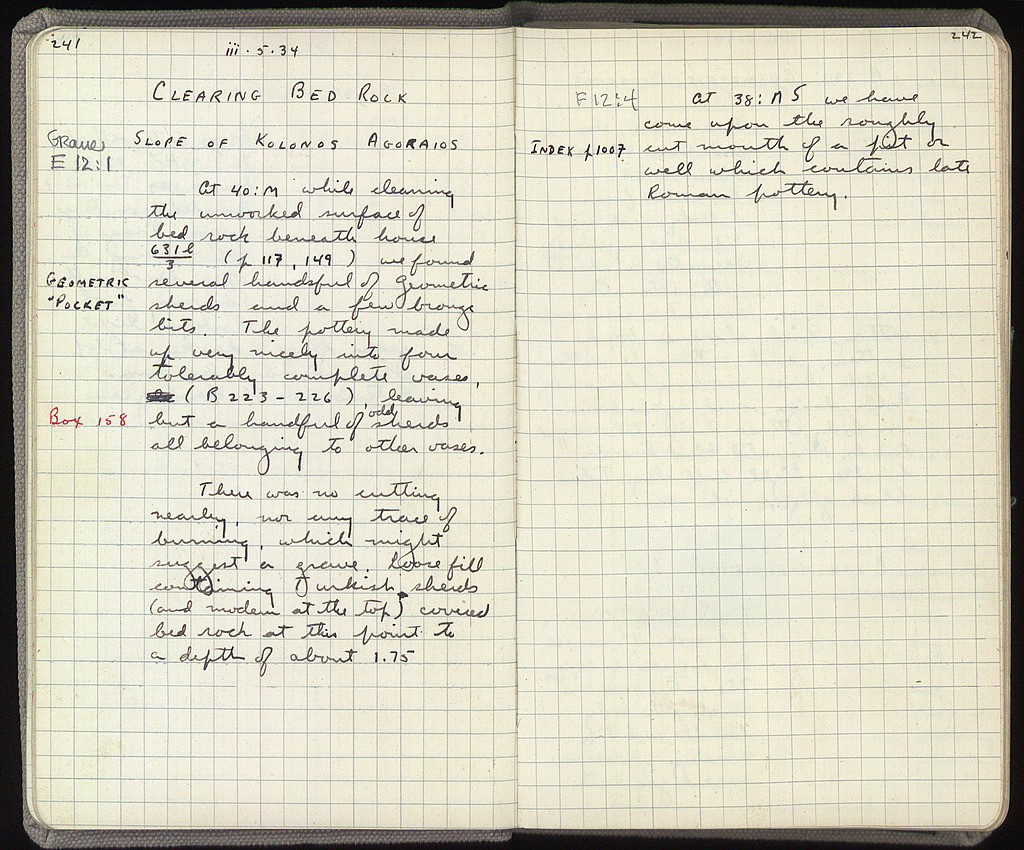 241
iii · 5 · 34
CLEARING BED ROCK
Grave
E 12:1
SLOPE OF KOLONOS AGORAIOS
At 40:M while cleaning
the unworked surface of
bed rock beneath house
631 l/3 (p 117, 149) we found
GEOMETRIC
"POCKET"
several handsful of Geometric
sherds and a few bronze
bits. The pottery made
up very nicely into four
tolerably complete vases,
(B 223 - 226), leaving
Box 158
but a handful of odd sherds
all belonging to other vases.
There was no cutting
nearby, nor any trace of
burning, which might
suggest a grave. Loose fill
containing Turkish sherds
(and modern at the top) covered
bed rock at this point to
a depth of about 1.75
242
E 12:4
At 38:M5 we have
come upon the roughly
INDEX p 1007
cut mouth of a pit or
well which contains late
Roman pottery.